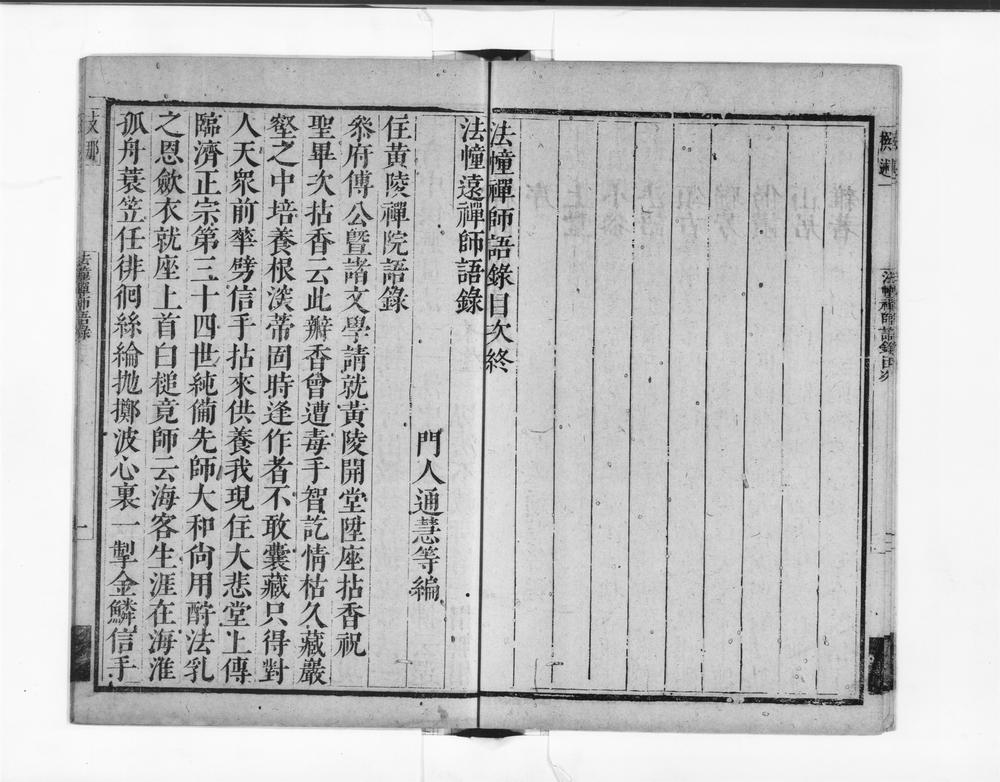 法幢禪師語錄目次
法幢禪師語錄目次終
法幢遠禪師語錄
門人通慧等編
住黃陵禪院語錄
叅府傅公暨諸文學請就黃陵開堂陞座拈香祝
聖畢次拈香云此瓣香曾遭毒手智訖情枯久藏巖
壑之中培養根深蒂固時逢作者不敢囊藏只得對
人天衆前華劈信手拈來供養我現住大悲堂上傳
臨濟正宗第三十四世純備先師大和尚用酧法乳
之恩歛衣就座上首白槌竟師云海客生涯在海淮
孤舟蓑笠任徘徊絲綸抛擲波心裏一掣金鱗信手
法幢禪師語錄
一